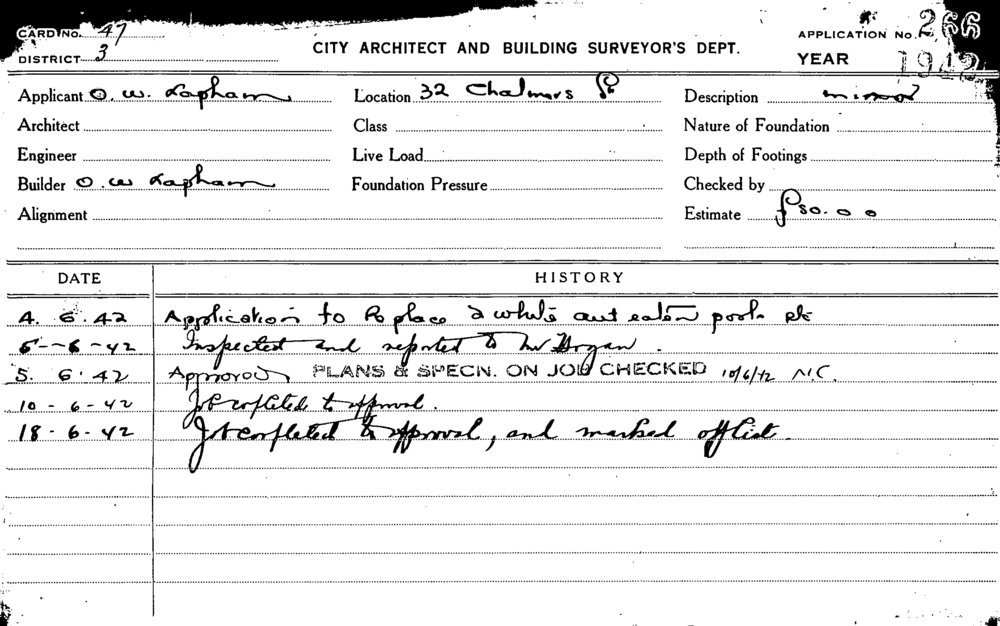 CARD NO. 47
DISTRICT 3
CITY ARCHITECT AND BUILDING SURVEYOR'S DEPT.
APPLICATION NO. 266
YEAR 1942
Applicant O. W. Lapham
Location 32 Chalmers St
Description minor
Architect
Class
Nature of Foundation
Engineer
Live Load
Depth of Footings
Builder O. W Lapham
Foundation Pressure
Checked by
Alignment
Estimate £50.00
DATE HISTORY
4. 6. 42 Application to Replace 2 white ant eaten posts etc
5 - 6 - 42 Inspected and reported to Mr Hogan.
5. 6. 42 Approved PLANS & SPECN. ON JOB CHECKED 10/6/42 N.C.
10 - 6 - 42 Job copleted to approval.
18 - 6 - 42 Job completed to approval, and marked off list.